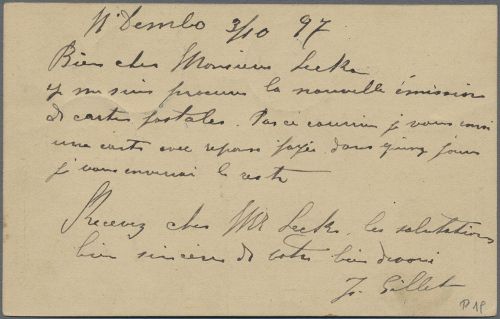 N'Dembo 3/10 97
Bien cher Monsieur Leckr
j me suis procuré la nouvelle émission
de cartes postales. Par ce courrier j vous envoi
une carte avec reponse payée dans quinz jours
j vous enverrai le reste
Recevez cher Mr Leckr les salutations
bien sincères de votre bien devoué
J. Gillet
P 18